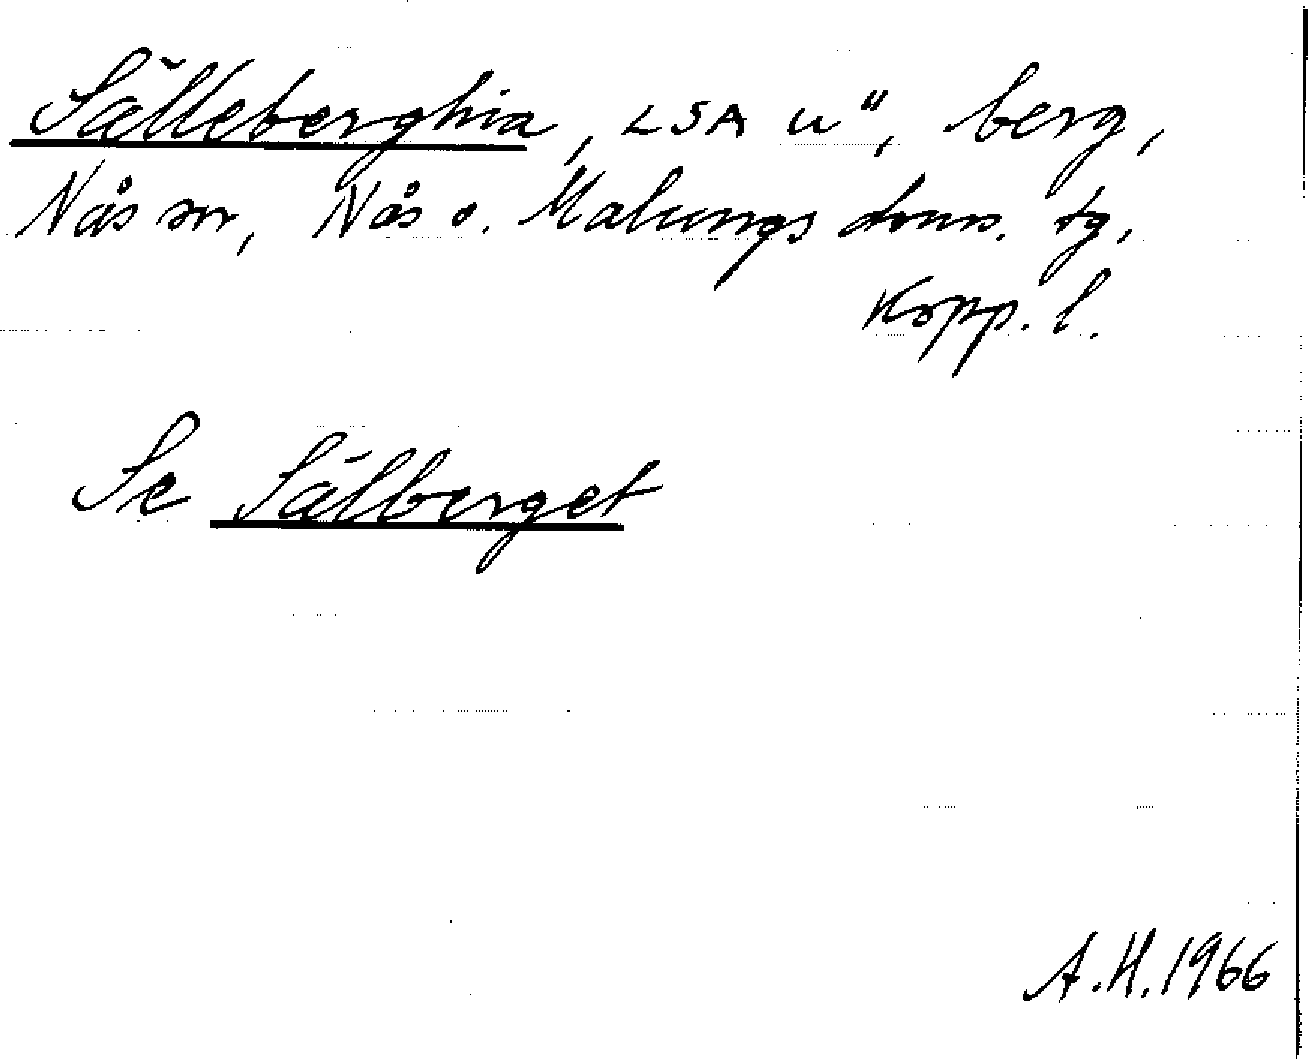 Sälleberghia, LSA u", berg,
Nås sn, Nås o. Malungs doms. tg,
Kopp. l.
Se Sälberget
A.H. 1966